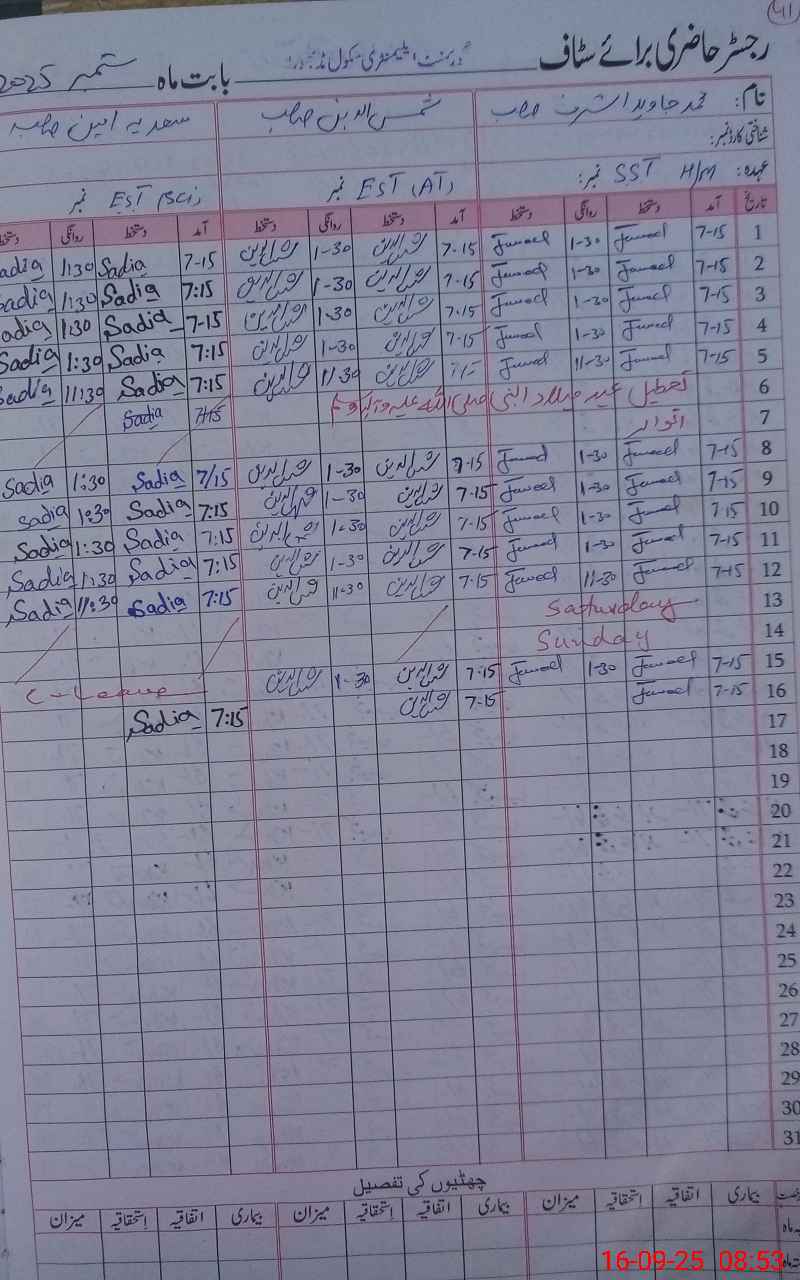 41
رجسٹر حاضری برائے سٹاف گورنمنٹ ایلیمنٹری سکول بابت ماہ ستمبر 2025
نام: محمد جاوید اشرف صاحب شمس الدین صاحب سعدیہ امین صاحبہ
شناختی کارڈ نمبر:
عہدہ: SST H/M نمبر: EST (AT) نمبر EST (Sci) نمبر
تاریخ آمد دستخط روانگی دستخط آمد دستخط روانگی دستخط آمد دستخط روانگی دستخط
1 7-15 Javed 1-30 Javed 7-15 شمس الدین 1-30 شمس الدین 7-15 Sadia 1:30 Sadia
2 7-15 Javed 1-30 Javed 7-15 شمس الدین 1-30 شمس الدین 7:15 Sadia 1:30 Sadia
3 7-15 Javed 1-30 Javed 7-15 شمس الدین 1-30 شمس الدین 7-15 Sadia 1:30 Sadia
4 7-15 Javed 1-30 Javed 7-15 شمس الدین 1-30 شمس الدین 7:15 Sadia 1:30 Sadia
5 7-15 Javed 11-30 Javed 7-15 شمس الدین 11-30 شمس الدین 7:15 Sadia 11:30 Sadia
6 تعطیل عید میلاد النبی صلی اللہ علیہ وآلہ وسلم 7:15 Sadia
7 اتوار
8 7-15 Javed 1-30 Javed 7-15 شمس الدین 1-30 شمس الدین 7/15 Sadia 1:30 Sadia
9 7-15 Javed 1-30 Javed 7-15 شمس الدین 1-30 شمس الدین 7:15 Sadia 1:30 Sadia
10 7-15 Javed 1-30 Javed 7-15 شمس الدین 1-30 شمس الدین 7:15 Sadia 1:30 Sadia
11 7-15 Javed 1-30 Javed 7-15 شمس الدین 1-30 شمس الدین 7:15 Sadia 1:30 Sadia
12 7-15 Javed 11-30 Javed 7-15 شمس الدین 11-30 شمس الدین 7:15 Sadia 11:30 Sadia
13 Saturday
14 Sunday
15 7-15 Javed 1-30 Javed 7-15 شمس الدین 1-30 شمس الدین C-Leave
16 7-15 Javed 7-15 شمس الدین 7:15 Sadia
17
18
19
20
21
22
23
24
25
26
27
28
29
30
31
چھٹیوں کی تفصیل
بیماری اتفاقیہ استحقاقیہ میزان بیماری اتفاقیہ استحقاقیہ میزان بیماری اتفاقیہ استحقاقیہ میزان
16-09-25 08:53